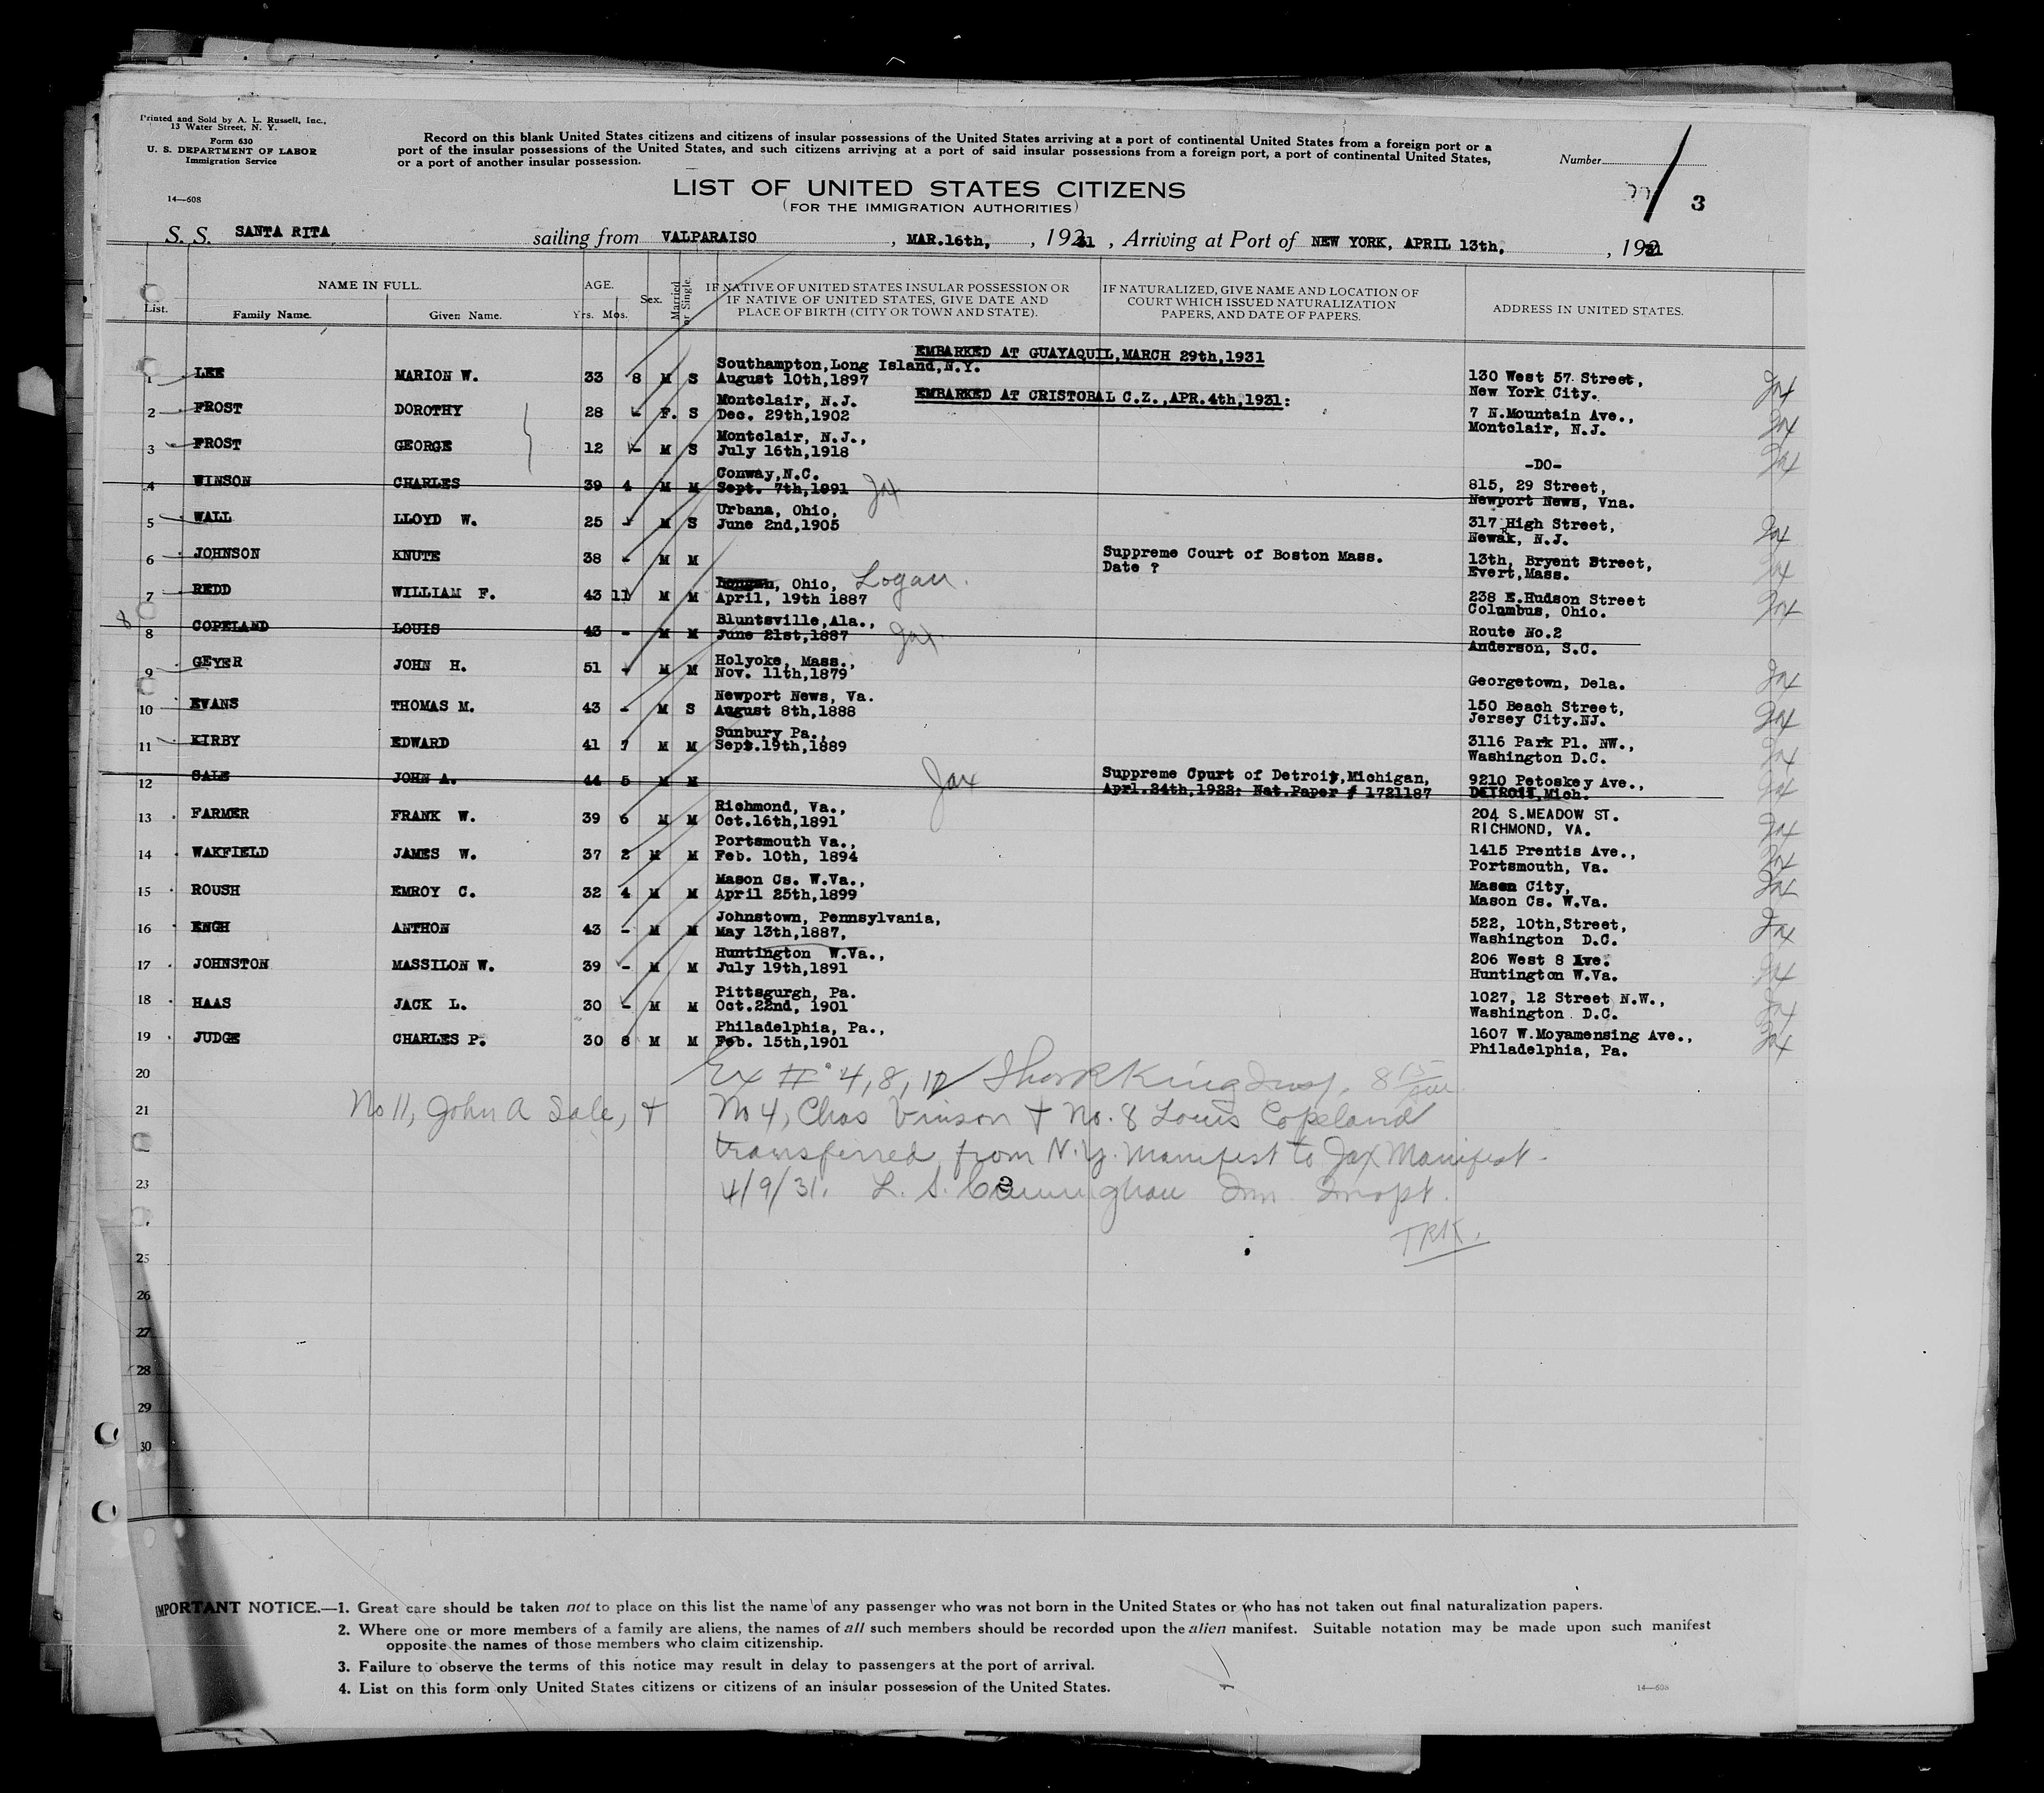 Printed and Sold by A. L. Russell, Inc.,
13 Water Street, N. Y.
Form 630
U. S. DEPARTMENT OF LABOR
Immigration Service
14—608
Record on this blank United States citizens and citizens of insular possessions of the United States arriving at a port of continental United States from a foreign port or a
port of the insular possessions of the United States, and such citizens arriving at a port of said insular possessions from a foreign port, a port of continental United States,
or a port of another insular possession.
Number
3
LIST OF UNITED STATES CITIZENS
(FOR THE IMMIGRATION AUTHORITIES)
S. S. SANTA RITA sailing from VALPARAISO, MAR.16th, , 1931, Arriving at Port of NEW YORK, APRIL 13th, , 1931
List.
NAME IN FULL.
Family Name. Given Name.
AGE.
Yrs. Mos.
Sex.
Married or Single.
IF NATIVE OF UNITED STATES INSULAR POSSESSION OR
IF NATIVE OF UNITED STATES, GIVE DATE AND
PLACE OF BIRTH (CITY OR TOWN AND STATE).
IF NATURALIZED, GIVE NAME AND LOCATION OF
COURT WHICH ISSUED NATURALIZATION
PAPERS, AND DATE OF PAPERS.
ADDRESS IN UNITED STATES.
EMBARKED AT GUAYAQUIL, MARCH 29th,1931
1 LEE MARION W. 33 8 M S Southampton,Long Island,N.Y.
August 10th,1897
130 West 57 Street,
New York City.
EMBARKED AT CRISTOBAL C.Z.,APR.4th,1931:
2 FROST DOROTHY 28 - F. S Montclair, N.J.
Dec. 29th,1902
7 N.Mountain Ave.,
Montclair, N.J.
3 FROST GEORGE 12 - M S Montclair, N.J.,
July 16th,1918
-DO-
4 WINSON CHARLES 39 4 M M Conway,N.C.
Sept. 7th,1891 Jax
815, 29 Street,
Newport News, Vna.
5 WALL LLOYD W. 25 - M S Urbana, Ohio,
June 2nd,1905
317 High Street,
Newak, N.J.
6 JOHNSON KNUTE 38 - M M
Supreme Court of Boston Mass.
Date ?
13th, Bryent Street,
Evert,Mass.
7 REDD WILLIAM F. 43 11 M M Ohio, Logan.
April, 19th 1887
238 E.Hudson Street
Columbus, Ohio.
8
8 COPELAND LOUIS 43 - M M Bluntsville,Ala.,
June 21st,1887 Jax.
Route No.2
Anderson, S.C.
9 GEYER JOHN H. 51 - M M Holyoke, Mass.,
Nov. 11th,1879
Georgetown, Dela.
10 EVANS THOMAS M. 43 - M S Newport News, Va.
August 8th,1888
150 Beach Street,
Jersey City.NJ.
11 KIRBY EDWARD 41 7 M M Sunbury Pa.,
Sept.19th,1889
3116 Park Pl. NW.,
Washington D.C.
12 SALE JOHN A. 44 5 M M Jax
Supreme Court of Detroit,Michigan,
Aprl.24th,1922: Nat.Paper # 1721187
9210 Petoskey Ave.,
DETROIT,Mich.
13 FARMER FRANK W. 39 6 M M Richmond, Va.,
Oct.16th,1891
204 S.MEADOW ST.
RICHMOND, VA.
14 WAKFIELD JAMES W. 37 2 M M Portsmouth Va.,
Feb. 10th, 1894
1415 Prentis Ave.,
Portsmouth, Va.
15 ROUSH EMROY C. 32 4 M M Mason Cs. W.Va.,
April 25th,1899
Mason City,
Mason Cs. W.Va.
16 ENGH ANTHON 43 - M M Johnstown, Pennsylvania,
May 13th,1887,
522, 10th,Street,
Washington D.C.
17 JOHNSTON MASSILON W. 39 - M M Huntington W.Va.,
July 19th,1891
206 West 8 Ave.
Huntington W.Va.
18 HAAS JACK L. 30 - M M Pittsgurgh, Pa.
Oct.22nd, 1901
1027, 12 Street N.W.,
Washington D.C.
19 JUDGE CHARLES P. 30 8 M M Philadelphia, Pa.,
Feb. 15th,1901
1607 W.Moyamensing Ave.,
Philadelphia, Pa.
20 Ex # 4, 8, 12 King Insp.
21 No 11, John A Sale, + No 4, Chas Vinson + No. 8 Louis Copeland
22 transferred from N.Y. Manifest to Jax Manifest.
23 4/9/31. L. S. Cunningham Imm Inspt.
TRK.
25
26
27
28
29
30
IMPORTANT NOTICE.—1. Great care should be taken not to place on this list the name of any passenger who was not born in the United States or who has not taken out final naturalization papers.
2. Where one or more members of a family are aliens, the names of all such members should be recorded upon the alien manifest. Suitable notation may be made upon such manifest
opposite the names of those members who claim citizenship.
3. Failure to observe the terms of this notice may result in delay to passengers at the port of arrival.
4. List on this form only United States citizens or citizens of an insular possession of the United States.
14—608